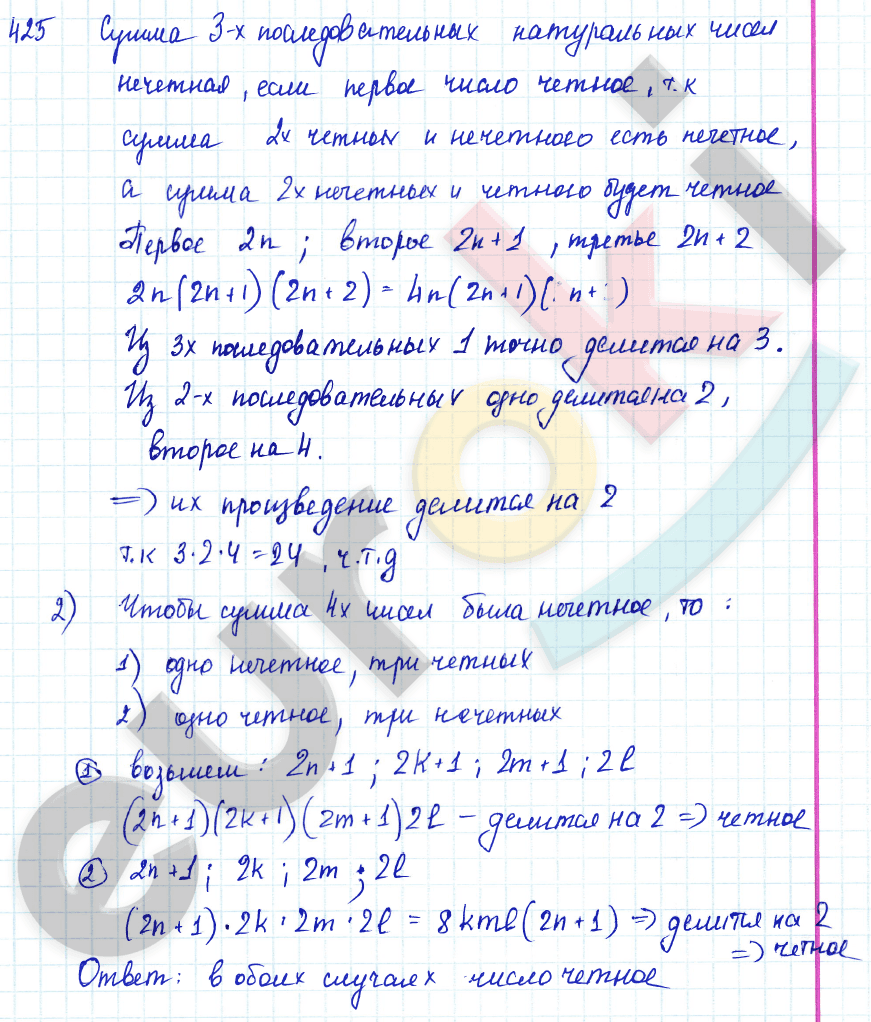 425 Сумма 3-х последовательных натуральных чисел
нечетная, если первое число четное, т.к
сумма 2х четных и нечетного есть нечетное,
а сумма 2х нечетных и четного будет четное
Первое 2n ; второе 2n+1 , третье 2n+2
2n(2n+1)(2n+2) = 4n(2n+1)( n+ )
Из 3х последовательных 1 точно делится на 3.
Из 2-х последовательных одно делится на 2,
второе на 4.
=> их произведение делится на 2
т.к 3·2·4 = 24 , ч.т.д
2) Чтобы сумма 4х чисел была нечетное, то :
1) одно нечетное, три четных
2) одно четное, три нечетных
① возьмем : 2n+1 ; 2k+1 ; 2m+1 ; 2l
(2n+1)(2k+1)(2m+1)2l – делится на 2 => четное
② 2n+1 ; 2k ; 2m ; 2l
(2n+1)·2k·2m·2l = 8kml(2n+1) => делится на 2
=> четное
Ответ: в обоих случаях число четное
euroki